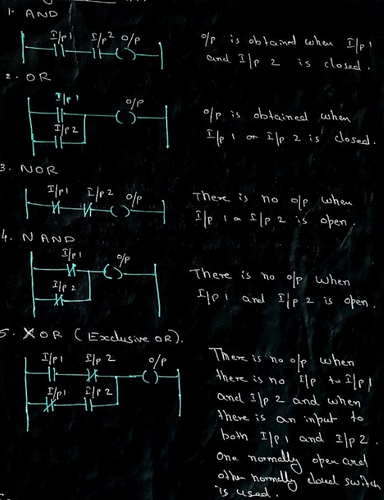 1. AND
I/p 1 I/p 2 o/p
o/p is obtained when I/p 1
and I/p 2 is closed.
2. OR
I/p 1 o/p
I/p 2
o/p is obtained when
I/p 1 or I/p 2 is closed.
3. NOR
I/p 1 I/p 2 o/p
There is no o/p when
I/p 1 or I/p 2 is open.
4. NAND
I/p 1 o/p
I/p 2
There is no o/p when
I/p 1 and I/p 2 is open.
5. XOR (Exclusive OR).
I/p 1 I/p 2 o/p
I/p 1 I/p 2
There is no o/p when
there is no I/p to I/p 1
and I/p 2 and when
there is an input to
both I/p 1 and I/p 2.
One normally open and
other normally closed switch
is used.